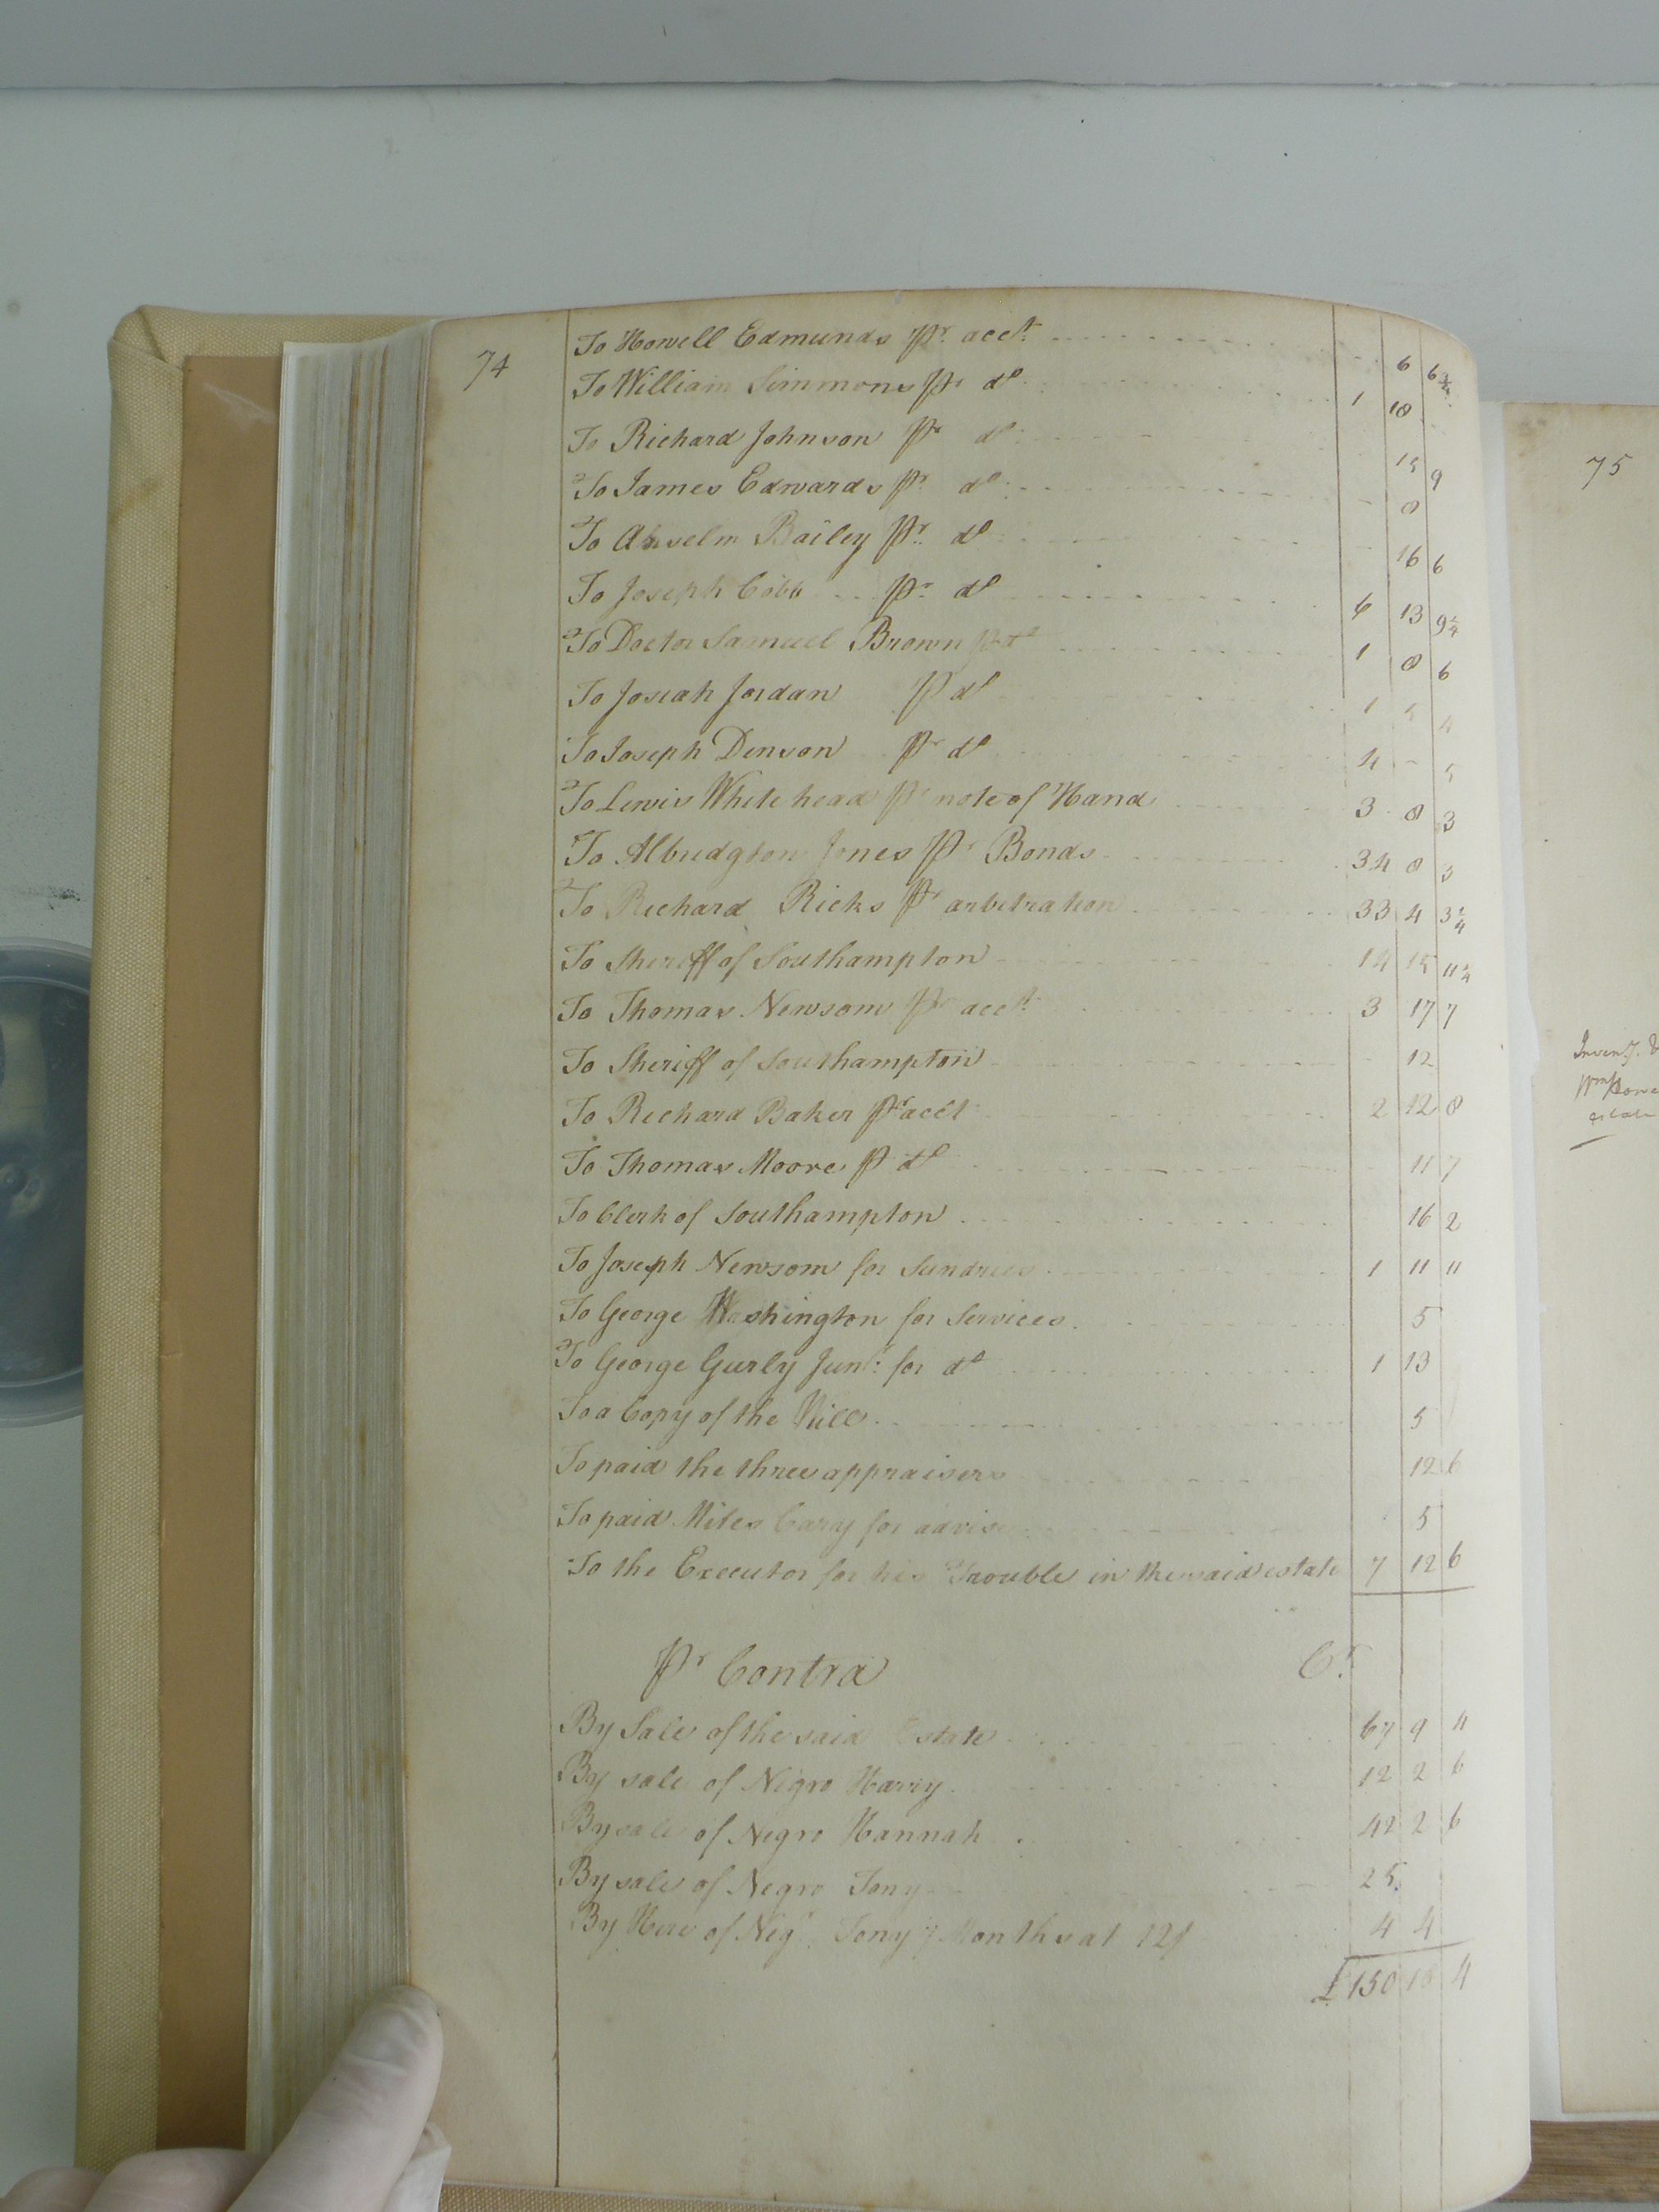 74
To Howell Edmunds pr. acct. 6 6 3/4
To William Simmons pr do. 1 18
To Richard Johnson pr do. 15 9
To James Edwards pr. do. 8
To Anselm Bailey pr. do 16 6
To Joseph Cobb pr. do 6 13 9 1/4
To Doctor Samuel Brown pr do 1 8 6
To Josiah Jordan p do 1 5 4
To Joseph Denson pr do 4 - 5
To Lewis Whitehead pr note of Hand 3 8 3
To Albridgton Jones pr Bonds 34 8 3
To Richard Ricks pr arbitration 33 4 3 1/4
To Sheriff of Southampton 14 15 11 1/4
To Thomas Newsom pr acct. 3 17 7
To Sheriff of Southampton 12
To Richard Baker pr acct 2 12 8
To Thomas Moore p do 11 7
To Clerk of Southampton 16 2
To Joseph Newsom for Sundries 1 11 "
To George Washington for Services 5
To George Gurly Junr. for do 1 13
To a Copy of the Will 5
To paid the three appraisers 12 6
To paid Miles Cary for advise 5
To the Executor for his Trouble in the said estate 7 12 6
pr Contra Cr.
By Sale of the said Estate 67 9 4
By sale of Nigro Harry 12 2 6
By sale of Negro Hannah 42 2 6
By sale of Negro Tony 25
By Hire of Nigo. Tony 7 Months at 12/ 4 4
£ 150 18 4
75
Inventy. &
Wm
estate